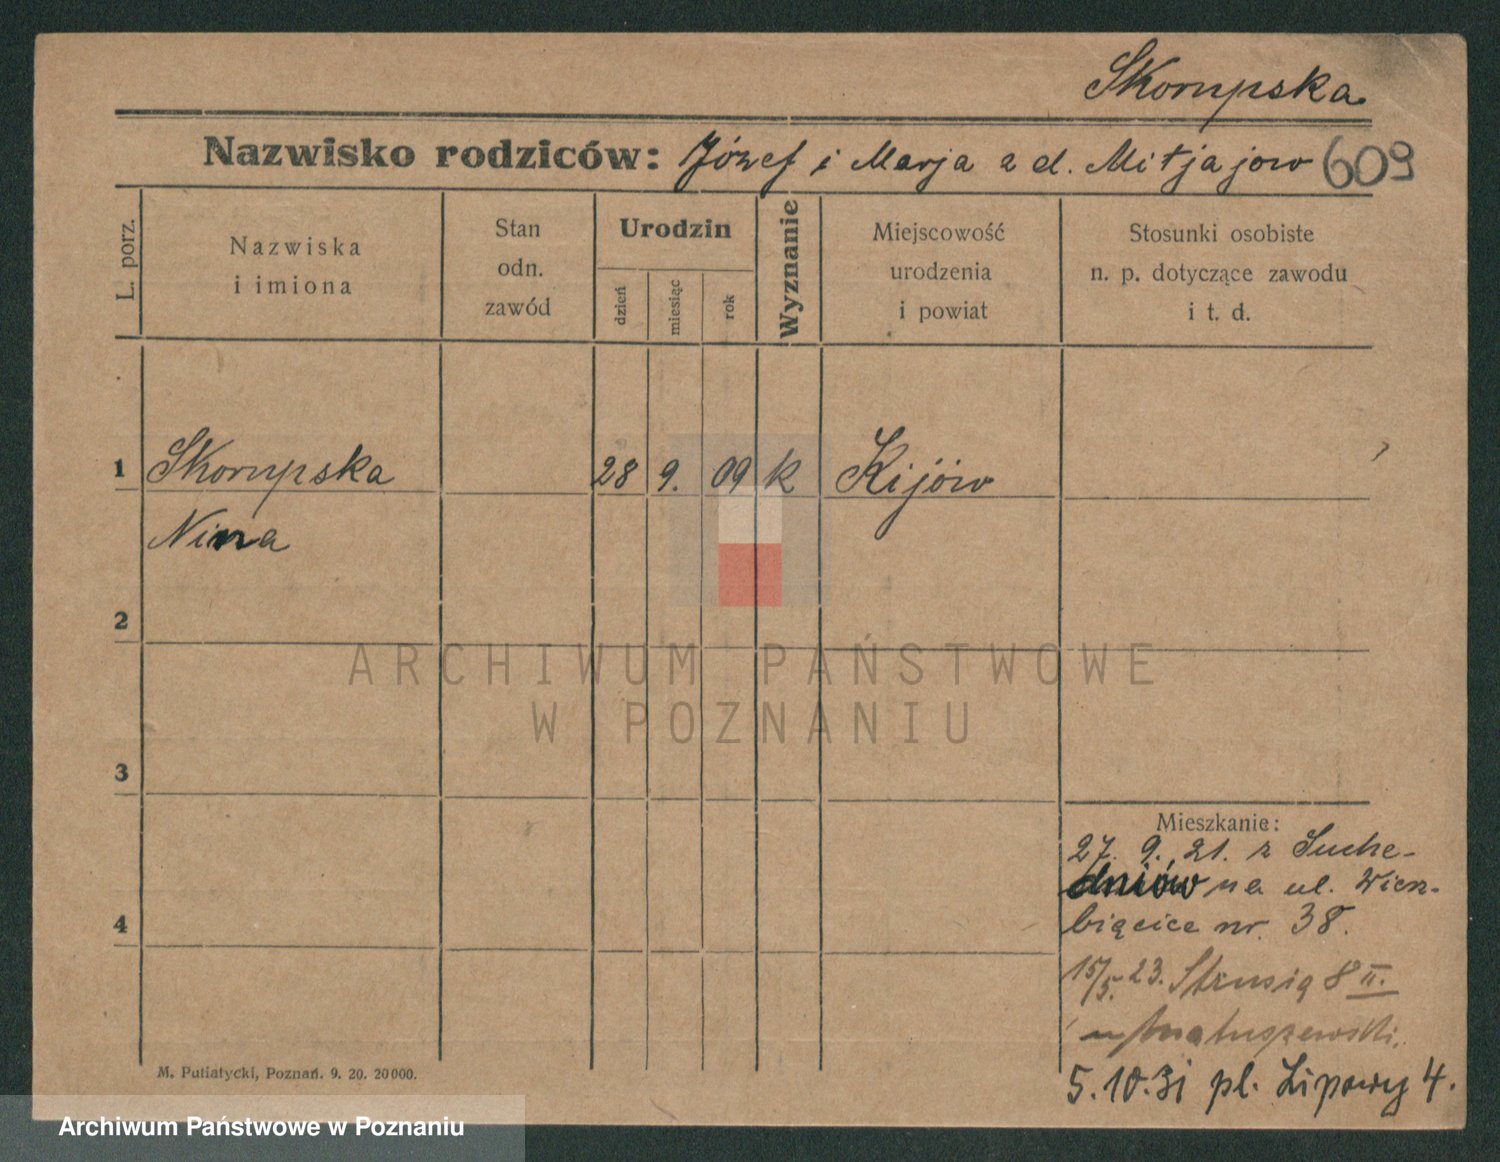 Skorupska
Nazwisko rodziców: Józef i Marja z d. Mitjajow 609
L. porz.
Nazwiska
i imiona
Stan
odn.
zawód
Urodzin
dzień
miesiąc
rok
Wyznanie
Miejscowość
urodzenia
i powiat
Stosunki osobiste
n. p. dotyczące zawodu
i t. d.
1 Skorupska 28 9. 09 k Kijów
Nina
2
ARCHIWUM PAŃSTWOWE
W POZNANIU
3
4
Mieszkanie:
27. 9. 21. z Suche-
dniów na ul. Wierz-
bięcice nr. 38.
15/5. 23. Strusią 8 II.
Matuszewski.
5.10.31 pl. Lipowy 4.
M. Putiatycki, Poznań. 9. 20. 20000.
Archiwum Państwowe w Poznaniu